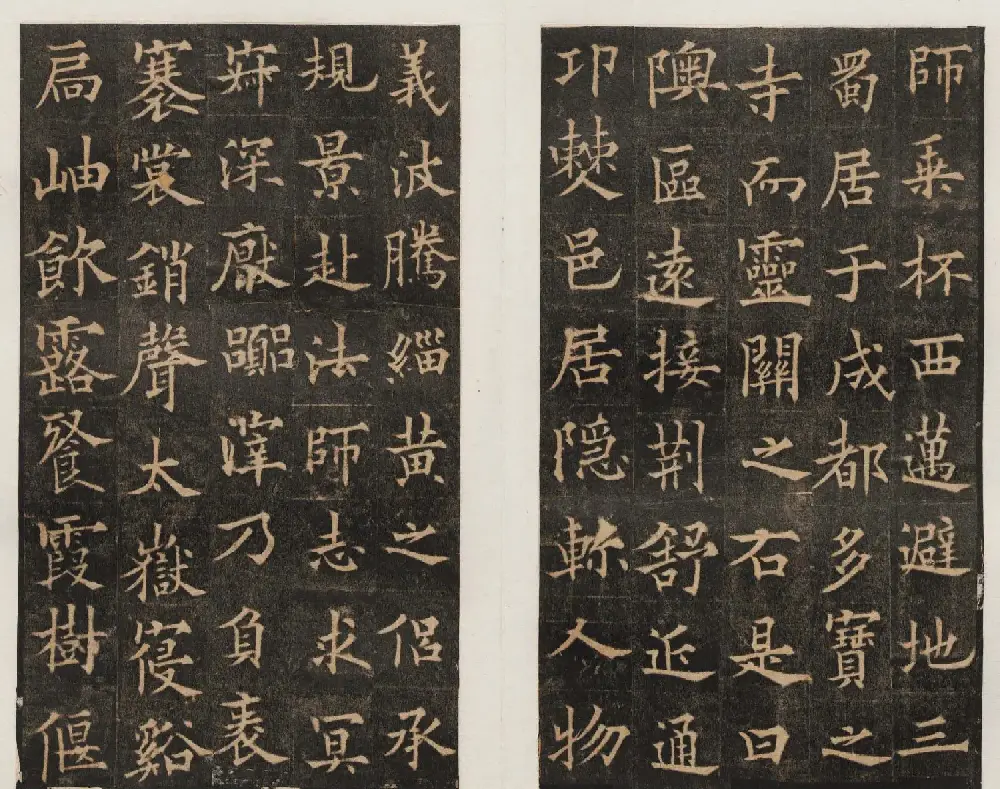 師乗杯西邁避地三
蜀居于成都多寶之
寺而靈關之右是曰
隩區遠接荆舒近通
邛僰邑居隠軫人物
義波騰緇黄之侣承
規景赴法師志求冥
寂深厭囂滓乃負袠
褰裳銷聲太嶽寑谿
扃岫飲露餐霞樹偃